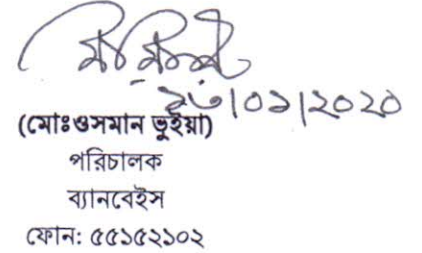 ২৩/০১/২০২০
(মোঃওসমান ভুইয়া)
পরিচালক
ব্যানবেইস
ফোন: ৫৫১৫২১০২